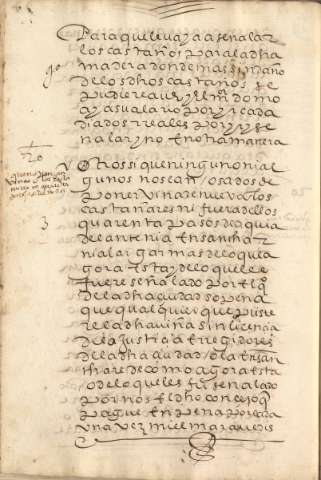 Para que le vaya a señalar
los castaños para la dha
madera donde mas sin daño
de los dhos castaños se
pudiere aver y el mayordomo
aya su alario por yr cada
dia dos rreales por yr se
nalar y no en otra manera
Otrossi que ningunonial
gunos no sean osados de
poner viña de nuevo a los
castañares ni fuera dellos
quarenta pasos de aqui a
delante ni a ensancha r
ni alargar mas de lo que a
gora esta y de lo que le e
fuere señalado por el q
de la dha ciudad so pena
que qual quier que pusie
re la dha viña sin licencia
de la justicia e rregidores
de la dha ciudad o la ensan
chare de como agora esta
o de lo que les fue señalado
por nos el dho concejo q
pague en pena por cada
una vez mill maravedis
3